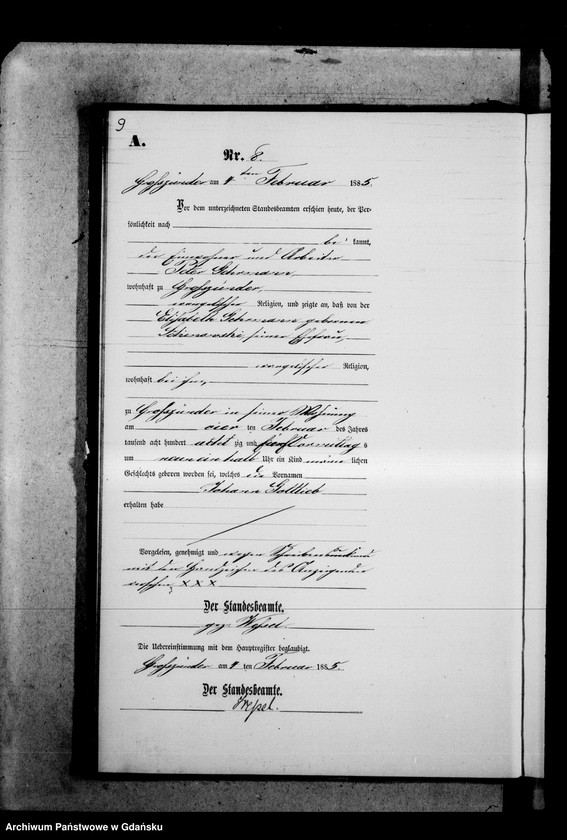 9
A.
Nr. 8.
Großzünder am 4ten Februar 1885.
Vor dem unterzeichneten Standesbeamten erschien heute, der Per-
sönlichkeit nach
be kannt,
der Einwohner und Arbeiter
Peter
wohnhaft zu Großzünder,
evangelischer Religion, und zeigte an, daß von der
Elisabeth geborenen
seiner Ehefrau,
evangelischer Religion,
wohnhaft bei ihm,
zu Großzünder in seiner Wohnung
am vier ten Februar des Jahres
tausend acht hundert achtzig und fünf Vormittags
um neuneinhalb Uhr ein Kind männlichen
Geschlechts geboren worden sei, welches die Vornamen
Johann Gottlieb
erhalten habe
Vorgelesen, genehmigt und wegen
mit den Handzeichen des Anzeigenden
versehen XXX
Der Standesbeamte.
gez. Wessel.
Die Uebereinstimmung mit dem Hauptregister beglaubigt.
Großzünder am 4 ten Februar 1885.
Der Standesbeamte.
Wessel.
Archiwum Państwowe w Gdańsku